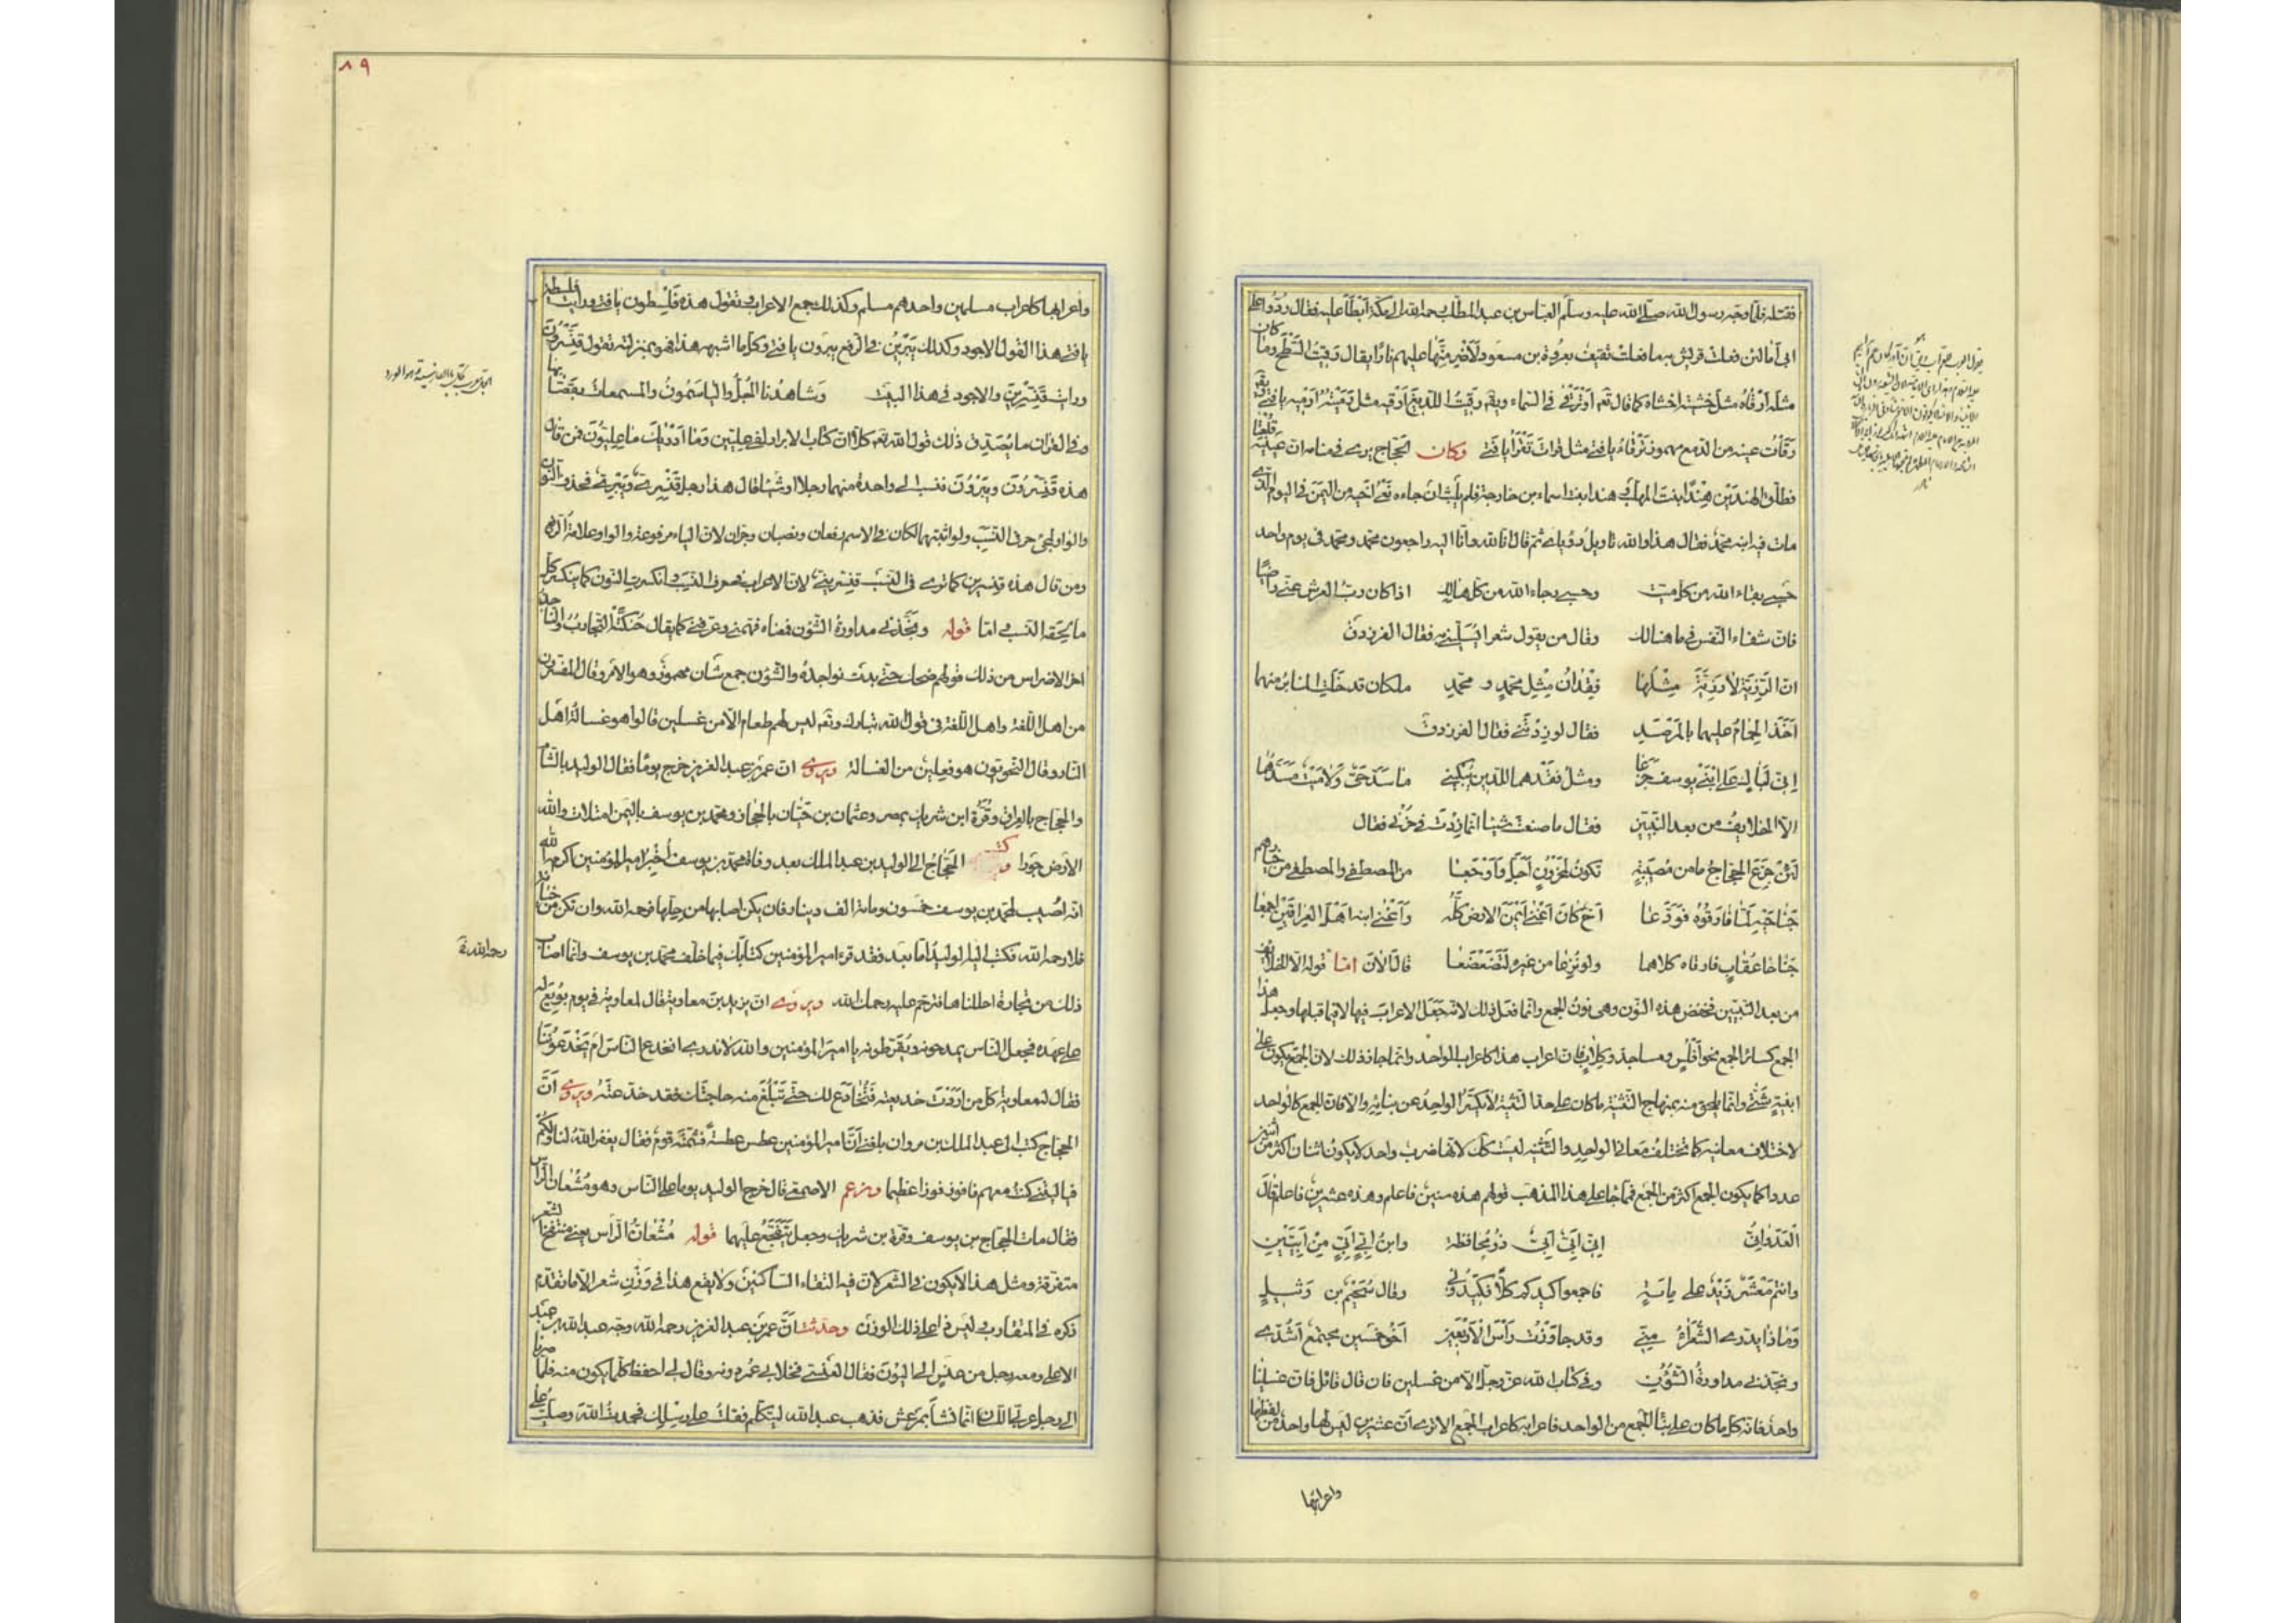 فقتله فلما وجه رسول الله صلى الله عليه وسلم العباس بن عبد المطلب رحمه الله الى مكة ابطأ عليه فقال ردوا على
ابى أما لئن فعلت قريش به ما فعلت ثقيف بعروة بن مسعود لأضرمنها عليهم نارا يقال رقيت السطح وما كان
مثله أرقاه مثل خشيته اخشاه كما قال تعه أو ترقى فى السماء ويقه رقيت اللديغ أرقيه مثل رميته أرميه يا فتى ويقه
رقأت عينه من الدمع مهموز ترقأ يا فتى مثل قرأت تقرأ يا فتى وكان الحجاج يرى فى منامه ان عينيه قلعتا
فطلق الهندين هندا بنت المهلب و هند ابنة اسماء بن خارجة فلم يلبث ان جاءه نعى اخيه من اليمن فى اليوم الذى
مات فيه ابنه محمد فقال هذا والله تأويل رؤياى ثم قال انا لله وانا اليه راجعون محمد ومحمد فى يوم واحد
حسبى بقاء الله من كل ميت وحسبى رجاء الله من كل هالك اذا كان رب العرش عنى راضيا
فان شفاء النفس فى ما هنالك وقال من يقول شعرا يسلينى به فقال الفرزدق
ان الرزية لا رزية مثلها فقدان مثل محمد و محمد ملكان قد خلت المنابر منهما
اخذ الحمام عليهما بالمرصد فقال لو زدتنى فقال الفرزدق
انى لباك على ابنى يوسف جزعا ومثل فقدهما للدين يبكينى ما سد حى ولا ميت مسدهما
الا الخلايف من بعد النبيين فقال ما صنعت شيئا انما زدت فى حزنى فقال
لئن جزع الحجاج ما من مصيبة تكون لمحزون أجل وأوجعا من المصطفى والمصطفى من خيارهم
جناحيه لما فارقوه فودعا اخ كان اغنى ايمن الارض كله وأغنى ابنه اهل العراقين اجمعا
جناحا عقاب فارقاه كلاهما ولو نزعا من غيره لتضعضعا قال الآن اما قوله الا الخلائف
من بعد النبيين فخفض هذه النون وهى نون الجمع وانما فعل ذلك لانه جعل الاعراب فيها لا فيما قبلها وجعل هذا
الجمع كسائر الجمع نحو أفلس ومساجد وكلاب فان اعراب هذا كاعراب الواحد وانما جاز ذلك لان الجمع يكون على
ابنية شتى وانما يلحق منه بمنهاج التثنية ما كان على حد التثنية لا يكسر الواحد عن بنائه والا فان الجمع كالواحد
لاختلاف معانيه كما تختلف معانى الواحد والتثنيه ليست كذلك لانها ضرب واحد لا يكون اثنان اكثر من اثنين
عددا كما يكون الجمع اكثر من الجمع فمما جاء على هذا المذهب قولهم هذه سنين فاعلم وهذه عشرين فاعلم قال
العدوانى انى ابى ابى ذو محافظة وابن ابى ابى من ابيين
وانتم معشر زيد على مائة فاجمعوا كيدكم كلا فكيدونى وقال سحيم بن وثيل
وماذا يدرى الشعراء منى وقد جاوزت رأس الاربعين أخو خمسين مجتمع أشدى
ونجذنى مداورة الشؤن وفى كتاب الله عز وجل الا من غسلين فان قال قائل فان غسلينا
واحد فانه كل ما كان على بناء الجمع من الواحد فاعرابه كاعراب الجمع الا ترى أن عشرين ليس لها واحد من لفظها
واعرابها
٨٩
واعرابها كاعراب مسلمين واحدهم مسلم وكذلك جمع الاعراب تقول هذه فلسطون يا فتى ورايت فلسطين
يا فتى هذا القول الاجود وكذلك يبرين فى الرفع يبرون يا فتى وكل ما اشبه هذا فهو بمنزلته تقول قنسرون
ورايت قنسرين والاجود فى هذا البيت وشاهدنا الجل والياسمون والمسمعات بقصابها
وفى القران ما يصدق ذلك قول الله تعه كلا ان كتاب الابرار لفى عليين وما ادريك ما عليون فمن قال
هذه قنسرون ويبرون فنسب الى واحدة منهما رجلا او شيئا قال هذا رجل قنسرى ويبرى فحذف النون
والواو لمجئ حرف النسب ولو اثبتهما لكان فى الاسم رفعان ونصبان وجران لان الياء مرفوعة والواو علامة الرفع
ومن قال هذه قنسرين كما ترى قال فى النسب قنسرينى لان الاعراب فى حرف النسب وانكسرت النون كما ينكسر كل
ما لحقه النسب اما قوله ونجذنى مداورة الشؤن فمعناه فهمنى وعرفنى كما يقال حنكته التجارب والناجذ
اخر الاضراس من ذلك قولهم ضحك حتى بدت نواجذه والشؤن جمع شأن مهموز وهو الامر وقال المفسرون
من اهل الفقه واهل اللغة فى قول الله تبارك وتعه ليس لهم طعام الا من غسلين قالوا هو غسالة اهل
النار وقال النحويون هو فعلين من الغسالة ويروى ان عمر بن عبد العزيز خرج يوما فقال الوليد بالشام
والحجاج بالعراق وقرة ابن شريك بمصر وعثمان بن حيان بالحجاز ومحمد بن يوسف باليمن امتلات والله
الارض جورا وكتب الحجاج الى الوليد بن عبد الملك بعد وفاة محمد بن يوسف أخبر امير المؤمنين اكرمه الله
انه أصيب لمحمد بن يوسف خمسون ومائة الف دينار فان يكن اصابها من حلها فرحمه الله وان تكن من خيانة
فلا رحمه الله فكتب اليه الوليد اما بعد فقد قرء امير المؤمنين كتابك فيما خلف محمد بن يوسف وانما اصاب
ذلك من تجارة احللناها له فترحم عليه رحمك الله ويروى ان يزيد بن معاوية قال لمعاوية فى يوم بويع له
على عهده فجعل الناس يمدحونه ويقرظونه يا امير المؤمنين والله لا ندرى انخدع الناس ام يخدعوننا
فقال له معاوية كل من اردت خديعته فتخادع لك حتى تبلغ منه حاجتك فقد خدعته ويروى أن
الحجاج كتب الى عبد الملك بن مروان بلغنى أن امير المؤمنين عطس عطسة فشمته قوم فقال يغفر الله لنا ولكم
فيا ليتنى كنت معهم فافوز فوزا عظيما وزعم الاصمعى قال خرج الوليد يوما على الناس وهو مشعان الراس
فقال مات الحجاج بن يوسف وقرة بن شريك وجعل يتفجع عليهما قوله مشعان الرأس يعنى منتفخ الشعر
متفرقه ومثل هذا لا يكون فى الشعر لان فيه التقاء الساكنين ولا يقع هذا فى وزن شعر الا ما تقدم
ذكره فى المتقارب ليس ذا على ذلك الوزن وحدثت أن عمر بن عبد العزيز رحمه الله وجه عبد الله بن عبد
الاعلى ومعه رجل من عنس الى اليون فقال العنسى فخلا بى عمر دونه وقال لى احفظ كلما يكون منه فلما صرنا
الى رجل عربى اللسان انما نشأ بمرعش فذهب عبد الله ليتكلم فقلت على رسلك فحمدت الله وصليت على
رحمه الله